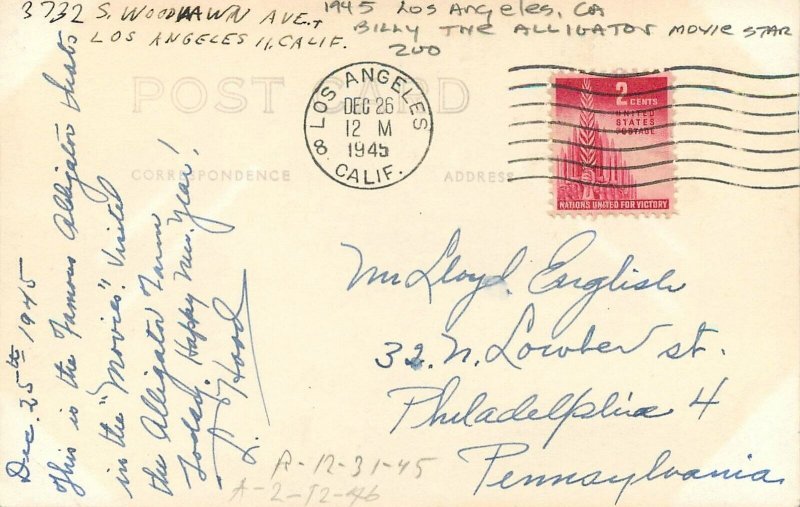 3732 S. WOODLAWN AVE.,
LOS ANGELES 11, CALIF.
1945 LOS ANGELES, CA
BILLY THE ALLIGATOR MOVIE STAR
ZOO
POST CARD
CORRESPONDENCE
ADDRESS
LOS ANGELES
DEC 26
12 M
1945
8 CALIF.
2 CENTS
UNITED
STATES
POSTAGE
NATIONS UNITED FOR VICTORY
Dec. 25th 1945
This is the Famous Alligator that's
in the "Movies". Visited
the Alligator Farm
today. Happy New Year!
Hood
Mr Lloyd English
32. N. Lowber st.
Philadelphia 4
Pennsylvania
R-12-31-45
A-2-12-46